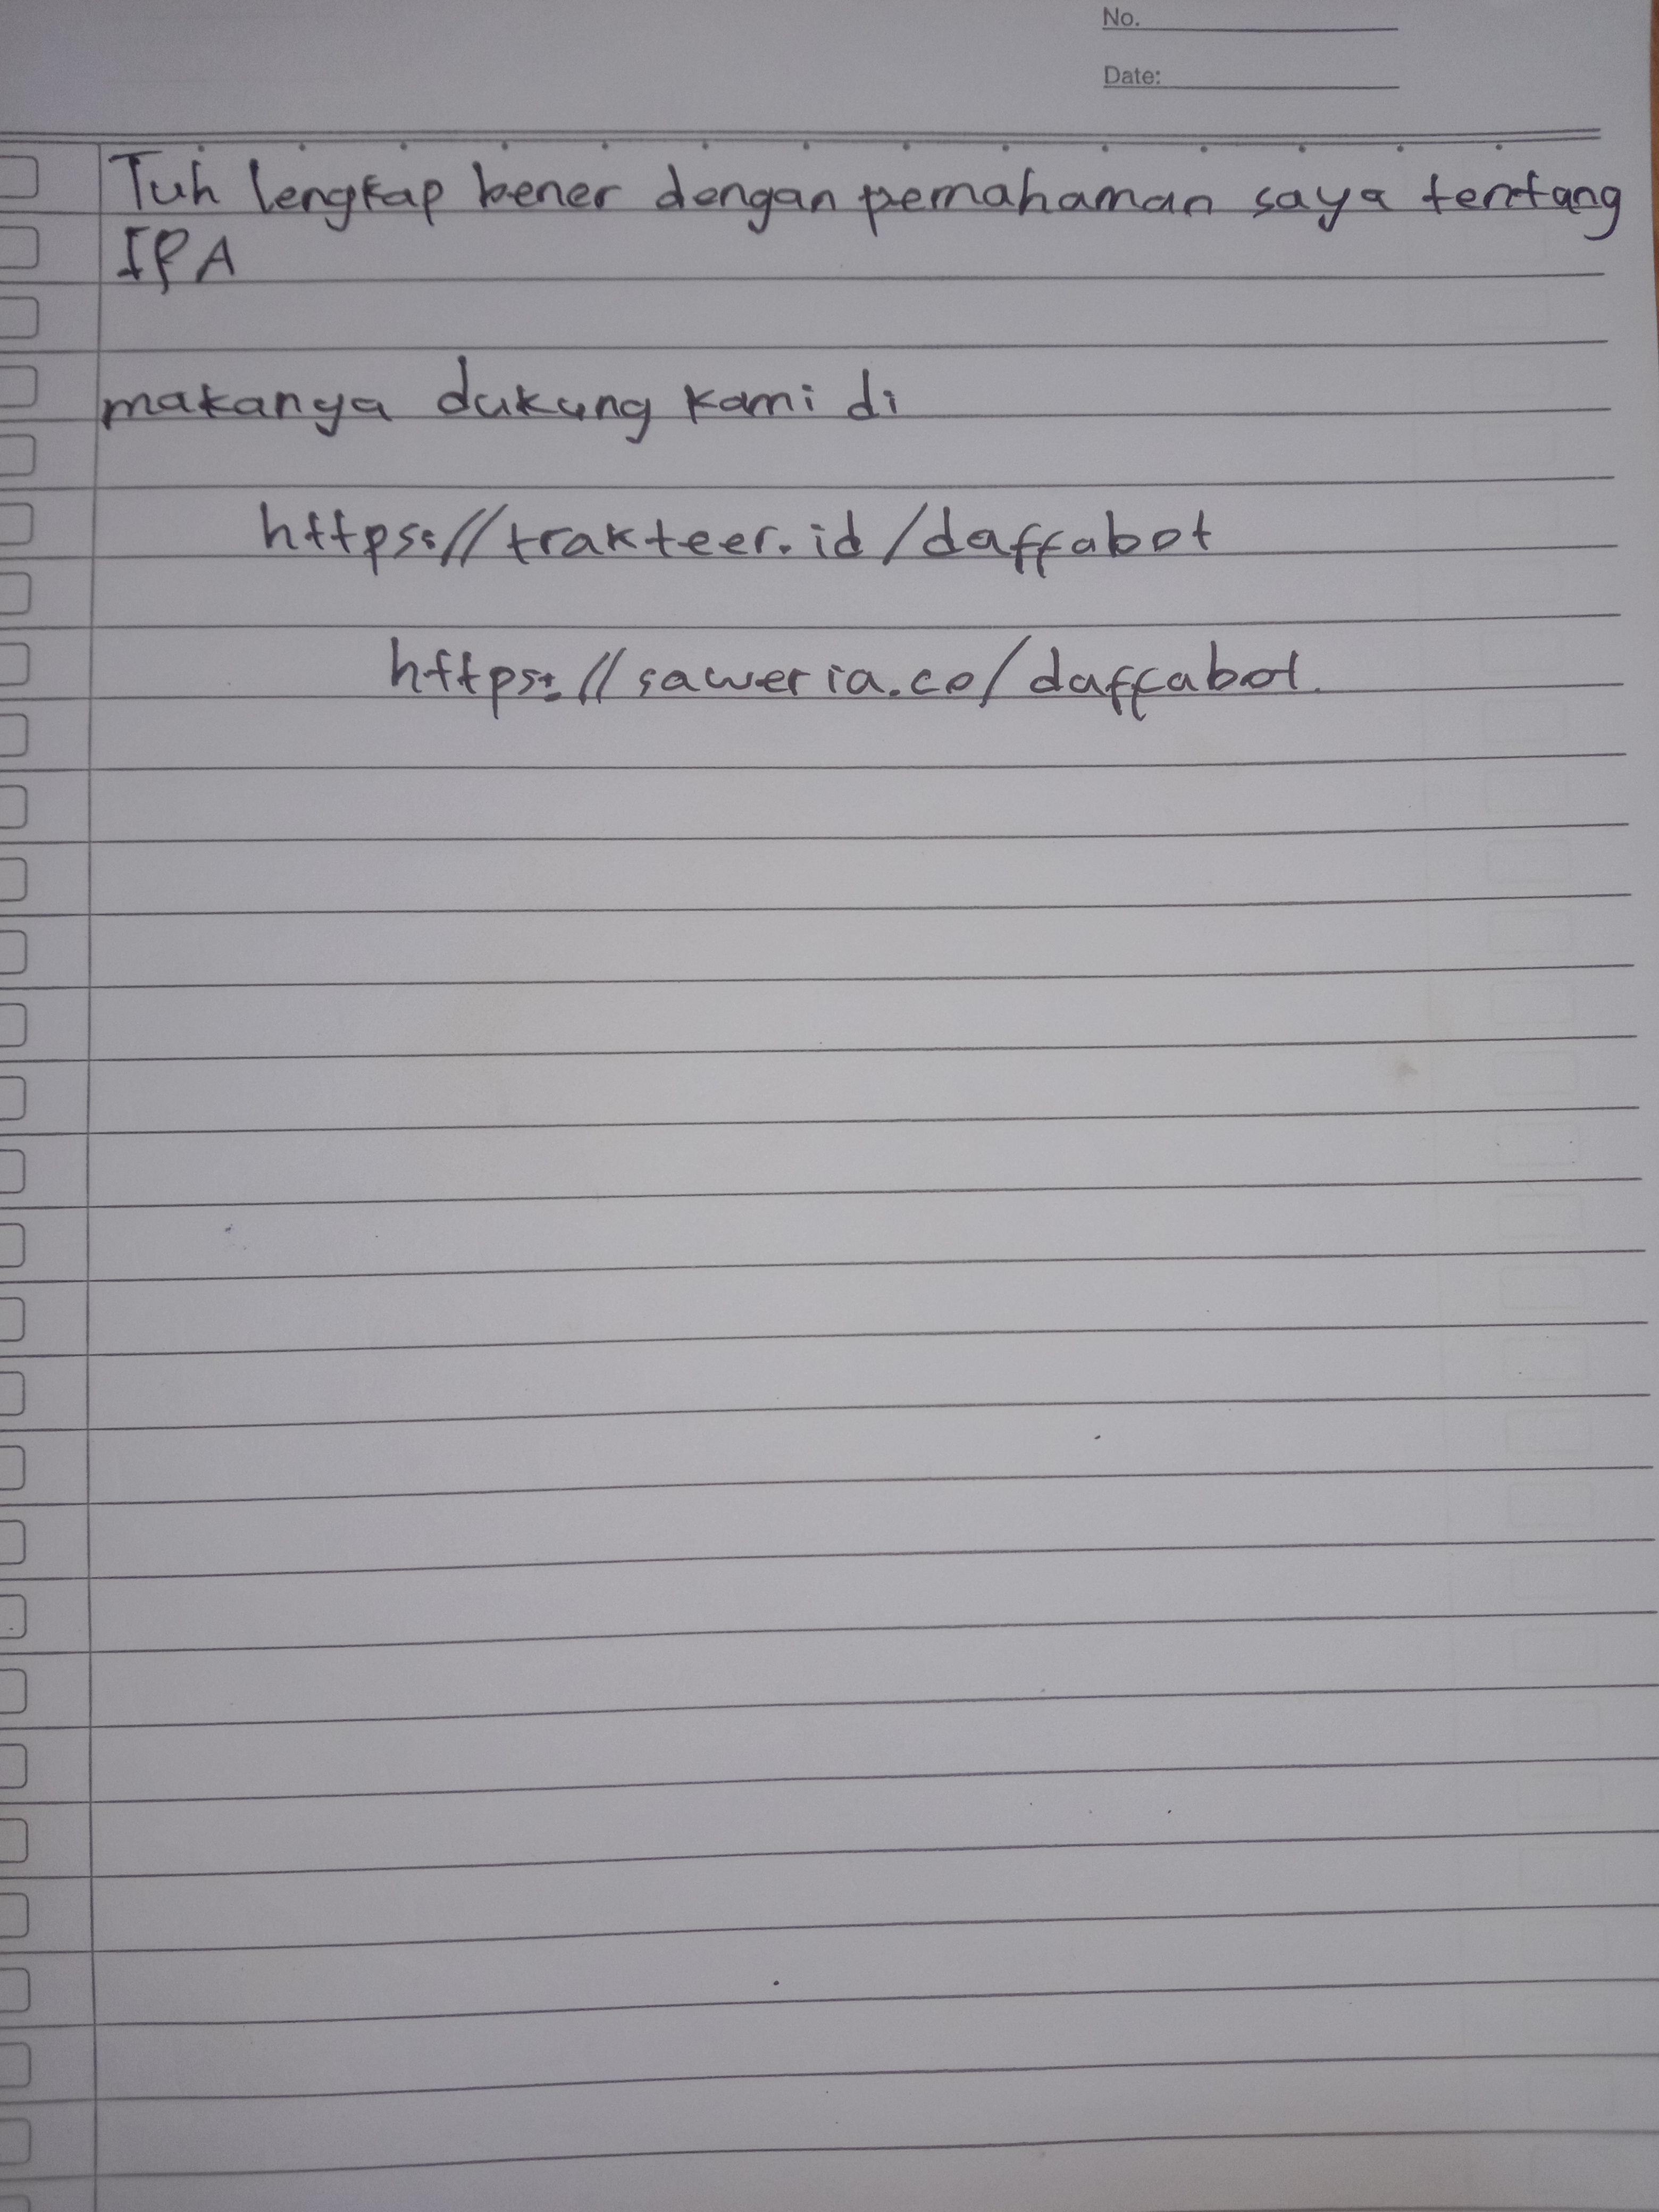 No.
Date:
Tuh lengkap bener dengan pemahaman saya tentang
IPA
makanya dukung kami di
https://trakteer.id/daffabot
https://saweria.co/daffabot.